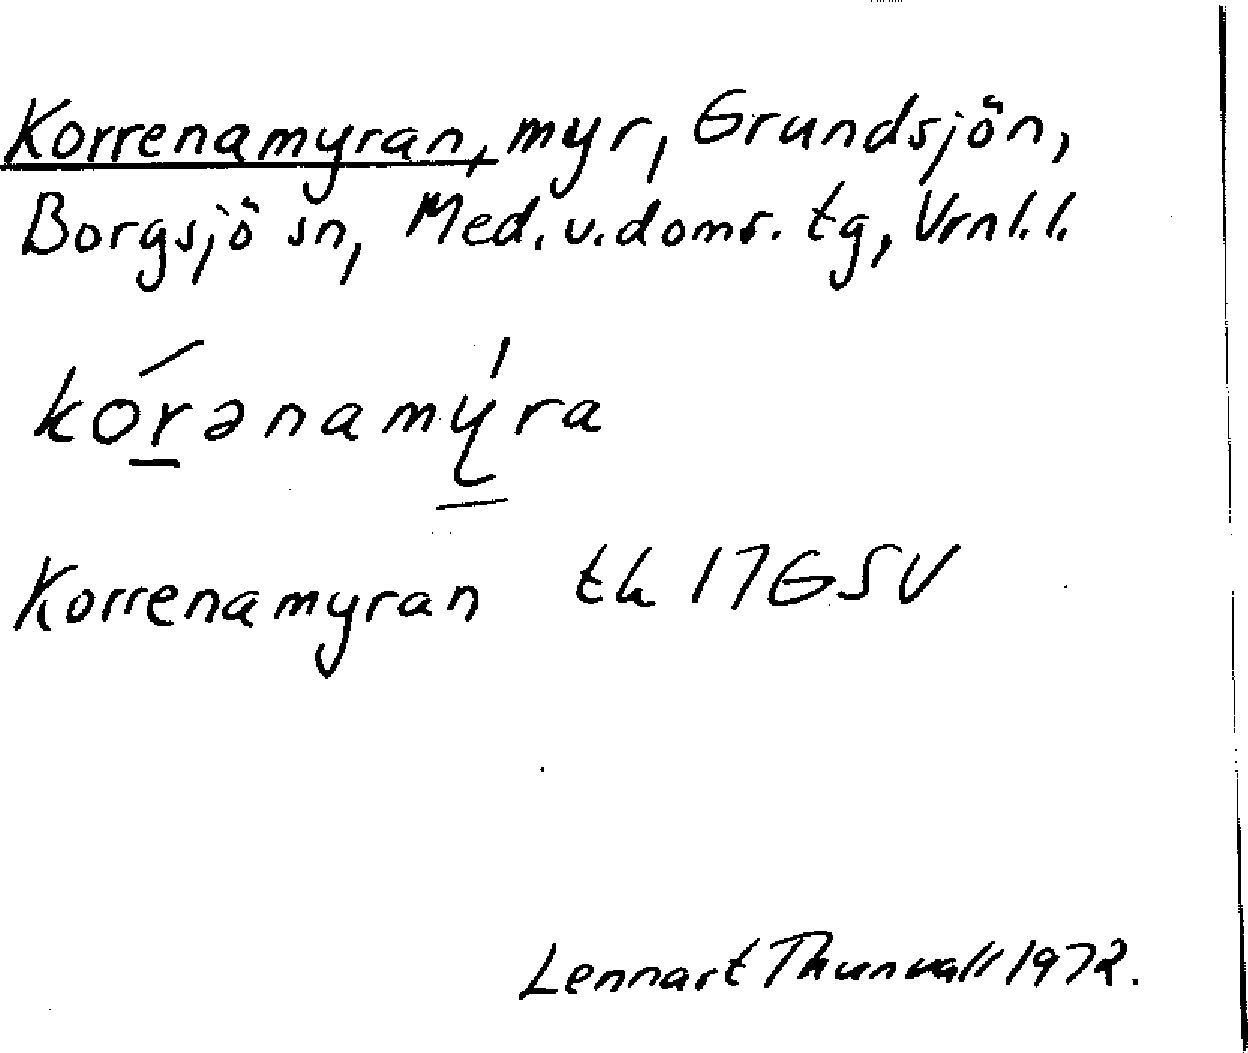 Korrenamyran, myr, Grundsjön,
Borgsjö sn, Med. v. doms. tg, Vrnl. l.
kórənamýra
Korrenamyran tk 17GSV
Lennart Thunvall 1972.